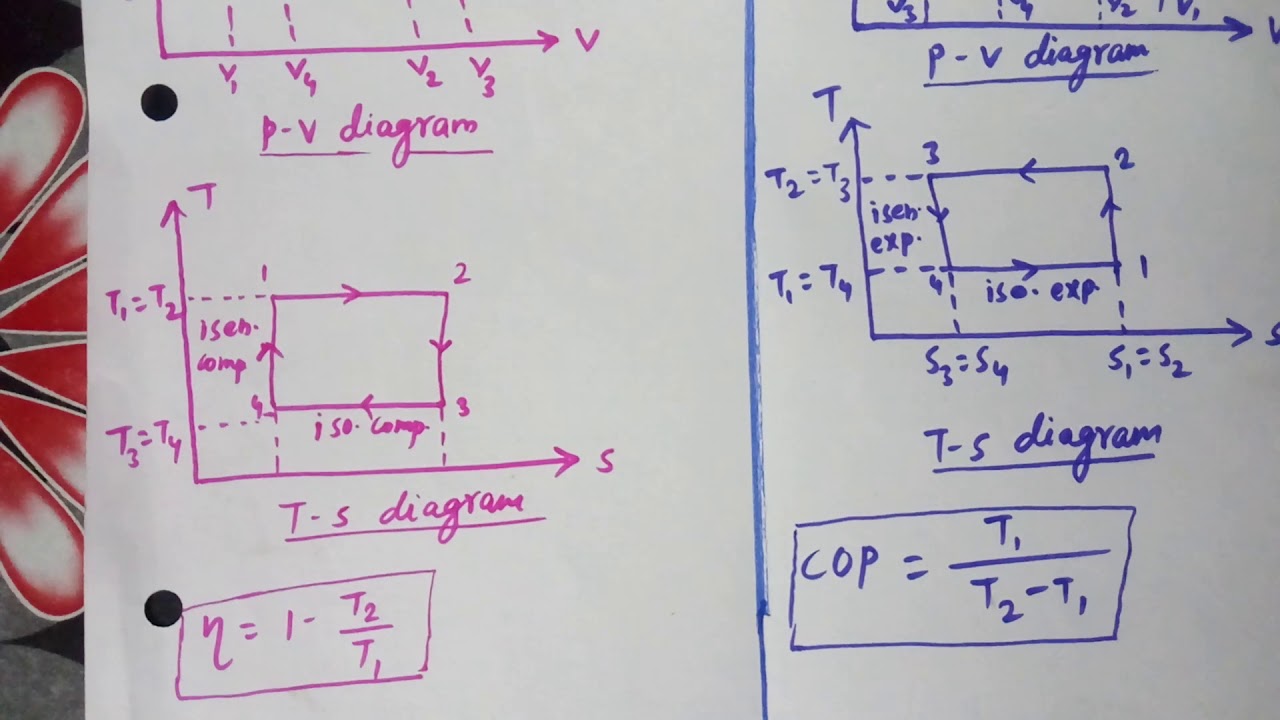 V
V₁ V₄ V₂ V₃
P-V diagram
T
1 2
T₁=T₂
isen.
comp
4 3
iso. comp.
T₃=T₄
S
T-S diagram
η = 1 - T₂/T₁
V₃ V₄ V₂ V₁
V
P-V diagram
T
3 2
T₂=T₃
isen.
exp.
T₁=T₄
4 1
iso. exp
S
S₃=S₄ S₁=S₂
T-S diagram
COP = T₁/T₂-T₁